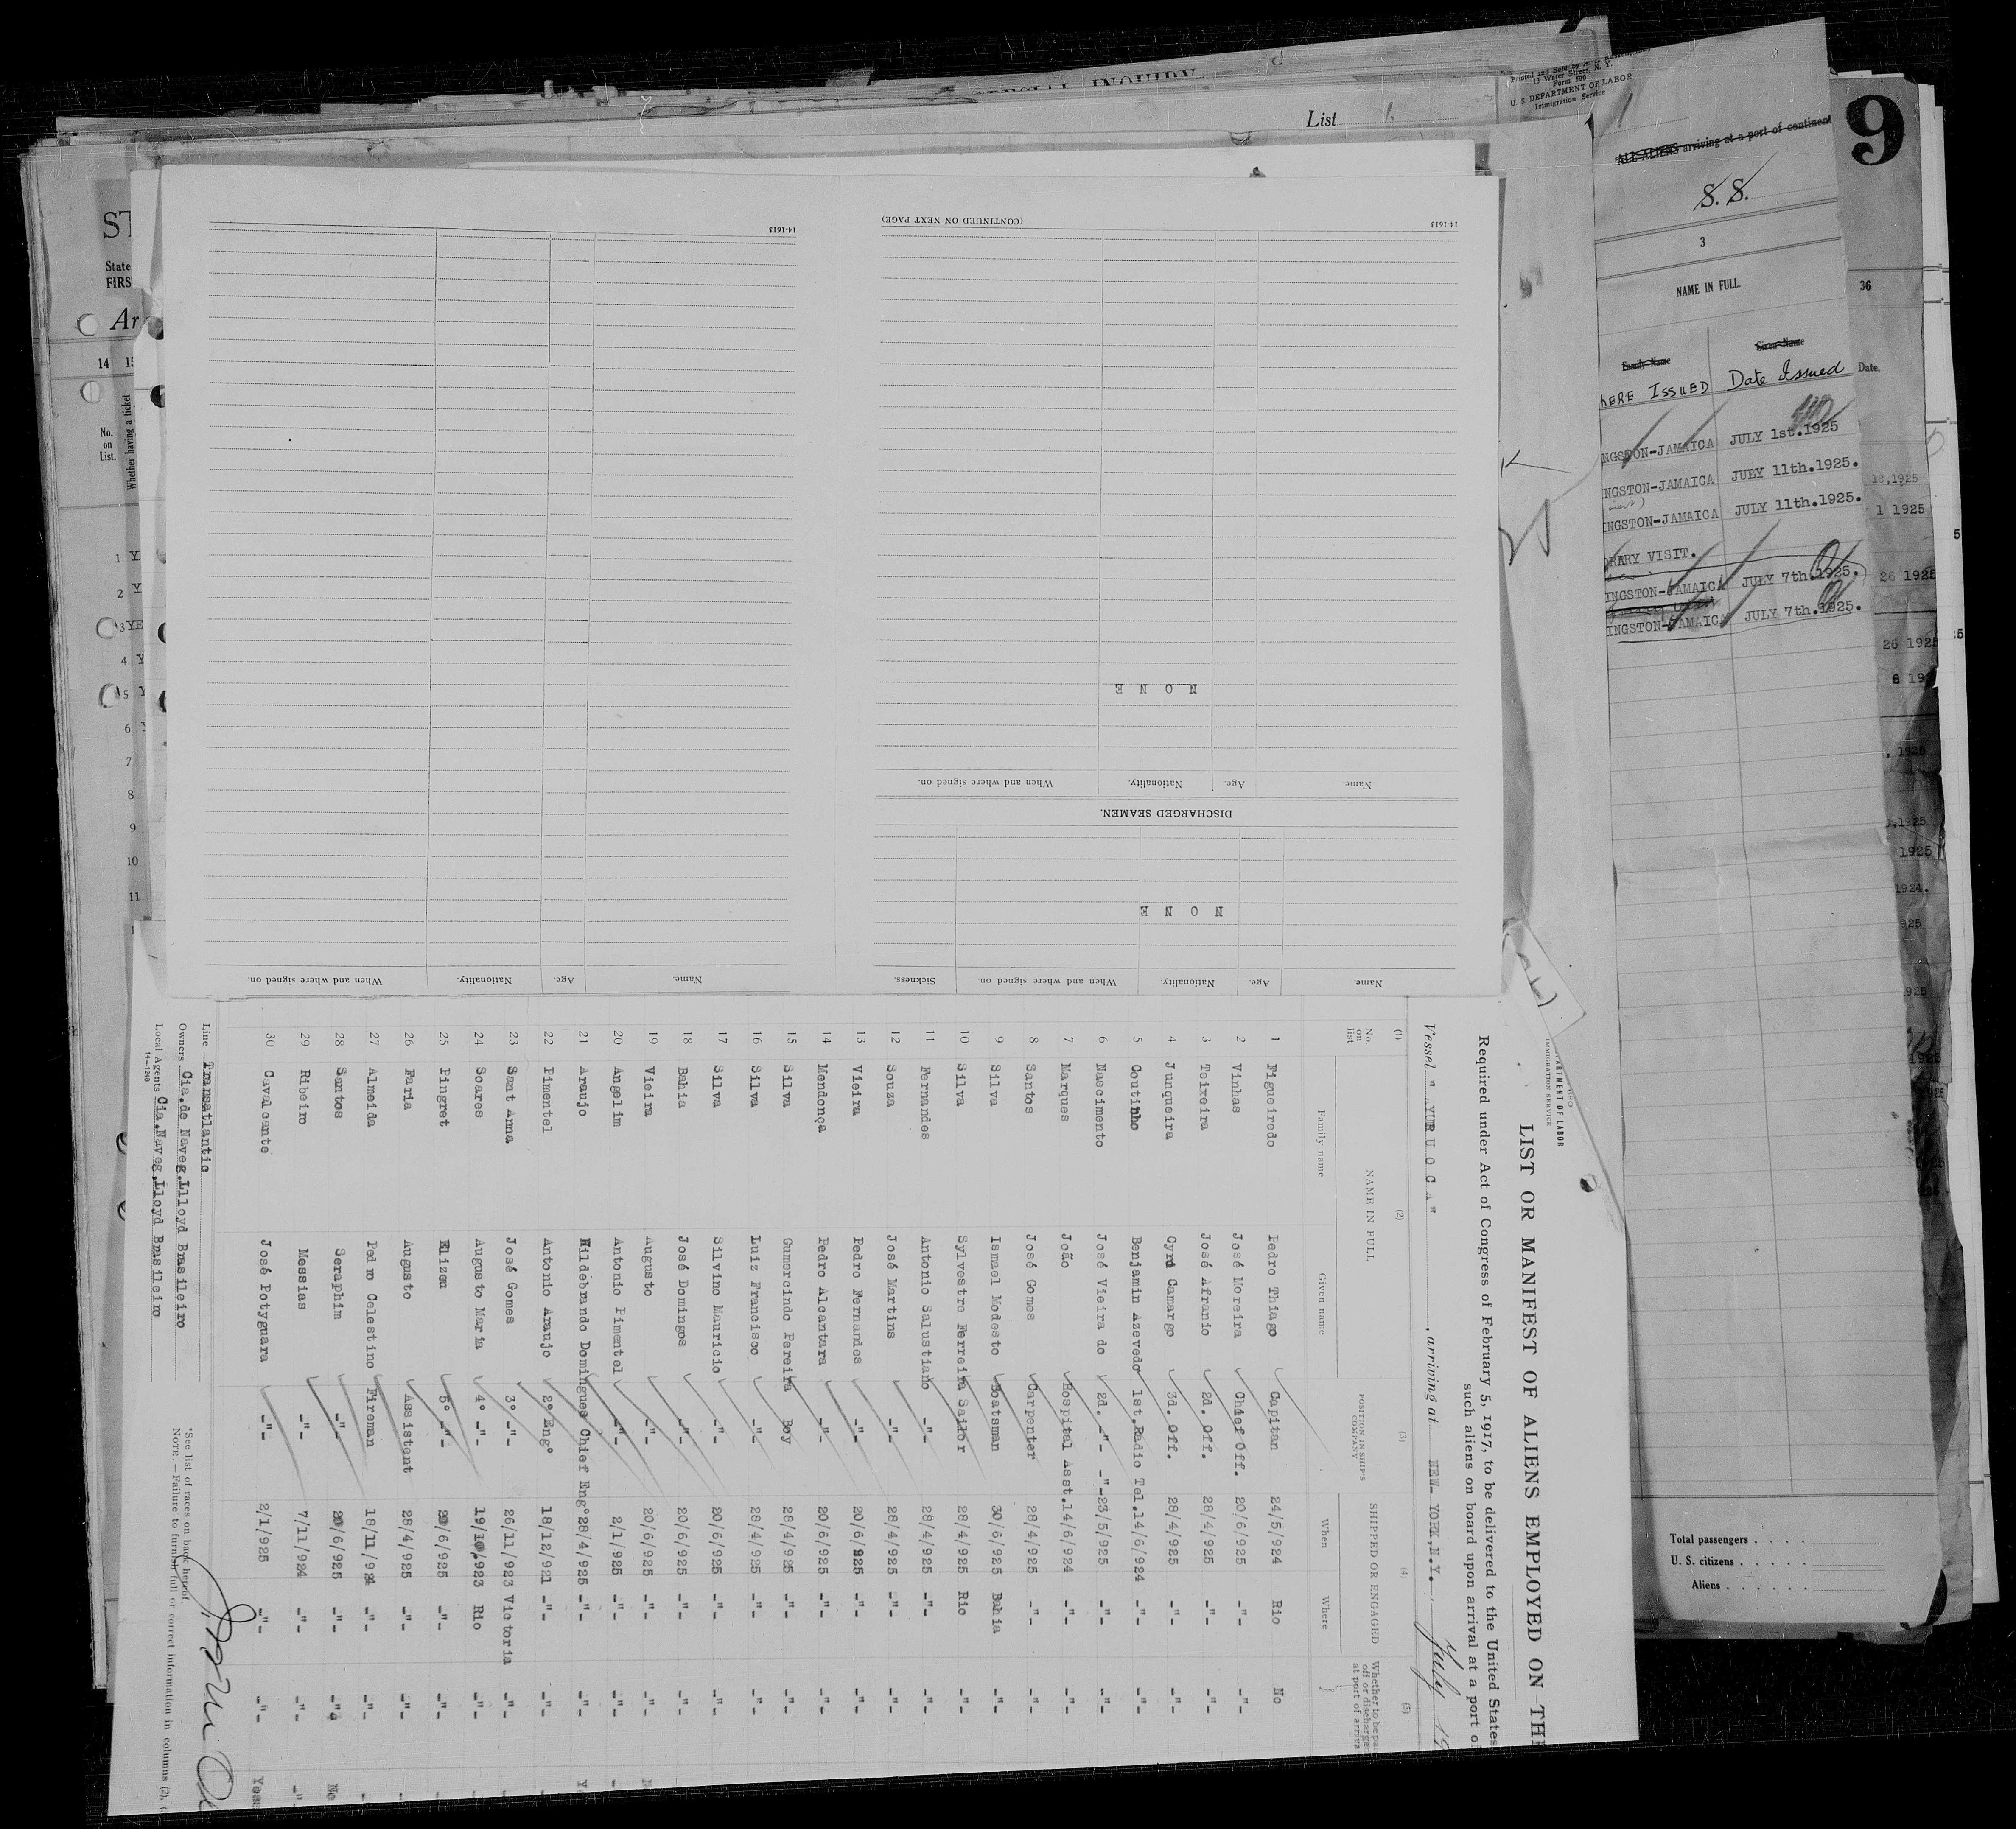 SPECIAL INQUIRY
List 1
13 Water Street, N. Y.
Form 500
U. S. DEPARTMENT OF LABOR
Immigration Service
ALL ALIENS arriving at a port of continent
S. S.
3
NAME IN FULL.
Family Name Given Name
HERE ISSUED Date Issued
NGSTON-JAMAICA JULY 1st.1925
NGSTON-JAMAICA JULY 11th.1925.
INGSTON-JAMAICA JULY 11th.1925.
ORARY VISIT.
INGSTON-JAMAICA JULY 7th.1925.
INGSTON-JAMAICA JULY 7th.1925.
Total passengers
U. S. citizens
Aliens
9
36
Date.
18,1925
1 1925
26 1925
26 1925
1925
1925
1925
1924.
925
925
ST
State
FIRS
Ar
14 15
No.
on
List.
Whether having a ticket
1 YE
2 Y
3 YE
4 Y
5 Y
6
7
8
9
10
11
14-1613
When and where signed on. Nationality. Age. Name.
(CONTINUED ON NEXT PAGE)
14-1613
Name. Age. Nationality. When and where signed on. Sickness.
N O N E
DISCHARGED SEAMEN.
Name. Age. Nationality. When and where signed on.
N O N E
ARTMENT OF LABOR
IMMIGRATION SERVICE
LIST OR MANIFEST OF ALIENS EMPLOYED ON TH
Required under Act of Congress of February 5, 1917, to be delivered to the United States
such aliens on board upon arrival at a port of
Vessel " AYURUOCA " , arriving at NEW- YORK,N.Y. July 19
(1) (2) (3) (4) (5)
No. on list NAME IN FULL POSITION IN SHIP'S COMPANY SHIPPED OR ENGAGED Whether to be pai off or discharge at port of arriva
Family name Given name When Where
1 Figueiredo Pedro Thiago Capitan 24/5/924 Rio No
2 Vinhas José Moreira Chief Off. 20/6/925 -"- -"-
3 Teixeira José Afranio 2d. Off. 28/4/925 -"- -"-
4 Junqueira Cyro Camargo 3d. Off. 28/4/925 -"- -"-
5 Coutinho Benjamin Azevedo 1st.Radio Tel.14/6/924 -"- -"-
6 Nascimento José Vieira do 2d. -"- -"-23/5/925 -"- -"-
7 Marques João Hospital Asst.14/6/924 -"- -"-
8 Santos José Gomes Carpenter 28/4/925 -"- -"-
9 Silva Ismael Modesto Boatsman 30/6/925 Bahia -"-
10 Silva Sylvestre Ferreira Sailor 28/4/925 Rio -"-
11 Fernandes Antonio Salustiano -"- 28/4/925 -"- -"-
12 Souza José Martins -"- 28/4/925 -"- -"-
13 Vieira Pedro Fernandes -"- 20/6/925 -"- -"-
14 Mendonça Pedro Alcantara -"- 20/6/925 -"- -"-
15 Silva Gumercindo Pereira Boy 28/4/925 -"- -"-
16 Silva Luiz Francisco -"- 28/4/925 -"- -"-
17 Silva Silvino Mauricio -"- 20/6/925 -"- -"-
18 Bahia José Domingos -"- 20/6/925 -"- -"-
19 Vieira Augusto -"- 20/6/925 -"- -"-
20 Angelim Antonio Pimentel -"- 2/1/925 -"- -"-
21 Araujo Hildebrando Domingues Chief Engº28/4/925 -"- -"-
22 Pimentel Antonio Araujo 2º Engº 18/12/921 -"- -"-
23 Sant Anna José Gomes 3º -"- 26/11/923 Victoria -"-
24 Soares Augusto Maria 4º -"- 19/10/923 Rio -"-
25 Pingret Elizeu 5º -"- 20/6/925 -"- -"-
26 Faria Augusto Assistent 28/4/925 -"- -"-
27 Almeida Pedro Celestino Fireman 18/11/924 -"- -"-
28 Santos Seraphim -"- 20/6/925 -"- -"- No
29 Ribeiro Messias -"- 7/11/924 -"- -"- -"-
30 Cavalcante José Potyguara -"- 2/1/925 -"- -"- Yes
Line Transatlantic
Owners Cia.de Naveg.Lloyd Brasileiro
Local Agents Cia.Naveg,Lloyd Brasileiro
14-1240
*See list of races on back hereof.
NOTE.—Failure to furnish full or correct information in columns (2), (